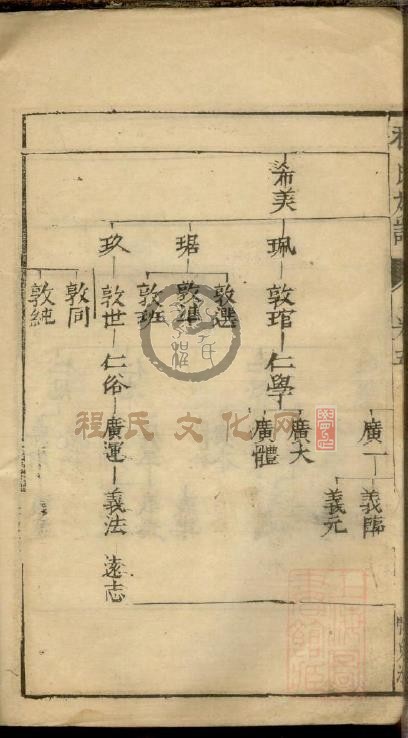 程氏族譜
卷五
廣一
義臨
義元
希美
珮
敦琯
仁學
廣大
廣體
琚
敦選
敦準
敦班
玖
敦世
仁俗
廣運
義法
遠志
敦同
敦純
程氏文化网